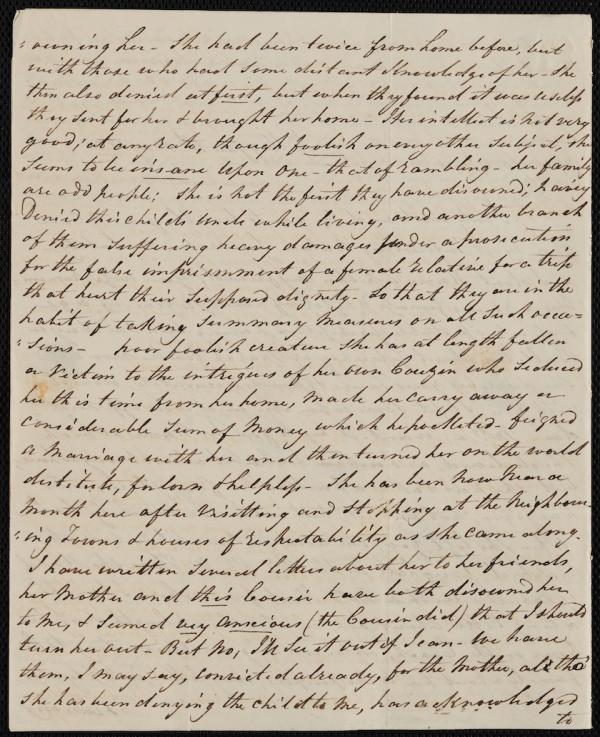 "owning her - She had been twice from home before, but
with those who had some distant Knowledge of her - She
then also denied at first, but when they found it was useless
they sent for her & brought her home - Her intellect is not very
good; at any rate, though foolish on every other subject, she
seems to be insane upon one - that of rambling - her family
are odd people; she is not the first they have disowned; having
Denied this child's Uncle while living, and another branch
of them suffering heavy damages under a prosecution
for the false imprisonment of a female relative for a trip
that hurt their supposed dignity - So that they are in the
habit of taking summary measures on all such occa=
"sions - poor foolish creature she has at length fallen
a Victim to the intrigues of her own Couzin who seduced
her this time from her home, made her carry away a
considerable sum of Money which he pocketed - feigned
a Marriage with her and then turned her on the world
destitute, forlorn & helpless - She has been now near a
Month here after visitting and stopping at the Neighbour-
"ing Towns & houses of respectability as she came along -
I have written several letters about her to her friends,
her Mother and this Cousin have both disowned her
to me, & seemed very anxcious (the Cousin did) that I should
turn her out - But No, I'll see it out if I can - we have
them, I may say, convicted already, for the Mother, altho'
she has been denying the child to me, has acknowledged
to